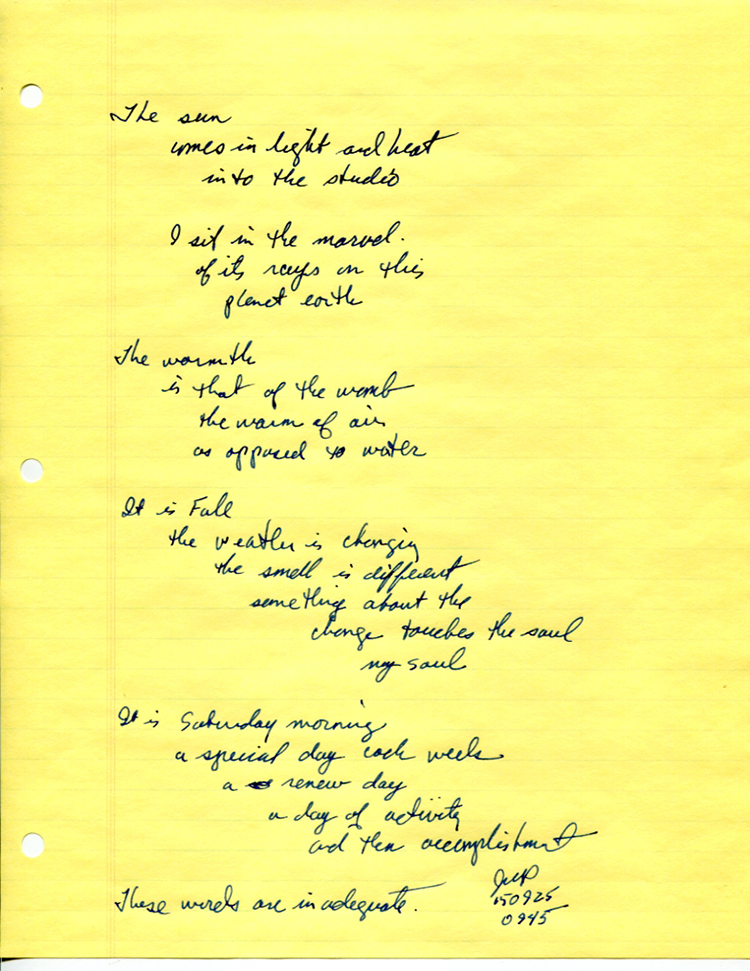 The sun
comes in light and heat
into the studio
I sit in the marvel.
of its rays on this
planet earth
The warmth
is that of the womb
the warm of air
as opposed to water
It is Fall
the weather is changing
the smell is different
something about the
change touches the soul
my soul
It is Saturday morning
a special day each week
a renew day
a day of activity
and then accomplishment
These words are inadequate.
150925
0945